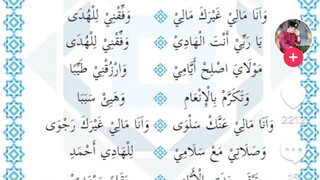 وَاَنَا مَالِيْ غَيْرَكَ مَالِيْ ۞ وَفِّقْنِيْ لِلْهُدَى
يَا رَبِّيْ أَنْتَ الْهَادِيْ ۞ وَفِّقْنِيْ لِلْهُدَى
مَوْلَايَ اصْلِحْ أَيَّامِيْ ۞ وَارْزُقْنِيْ طَيِّبًا
وَتَكَرَّمْ بِالْإِنْعَامِ ۞ وَهَيِّئْ سَبَبَا
وَاَنَا مَالِيْ عَنَّكَ سَلْوَى ۞ وَاَنَا مَالِيْ غَيْرَكَ رَجْوَى
وَصَلَاتِيْ مَعْ سَلَامِيْ ۞ لِلْهَادِي أَحْمَدِ